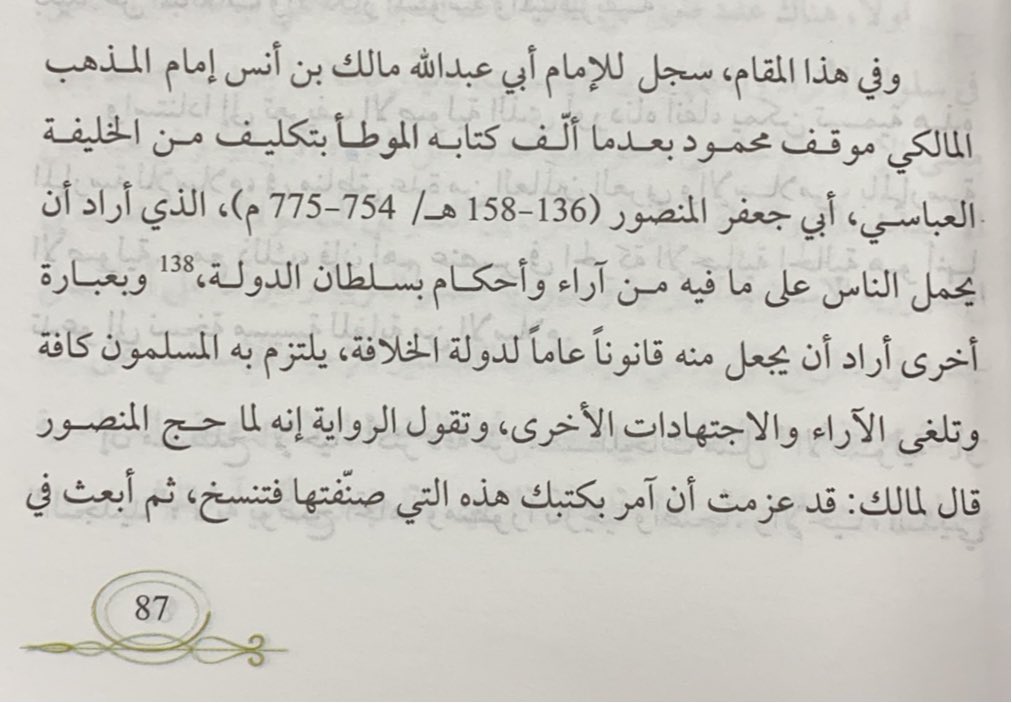 وفي هذا المقام، سجل للإمام أبي عبدالله مالك بن أنس إمام المذهب
المالكي موقف محمود بعدما ألّف كتابه الموطأ بتكليف من الخليفة
العباسي، أبي جعفر المنصور (136-158 هـ/ 754-775 م)، الذي أراد أن
يحمل الناس على ما فيه من آراء وأحكام بسلطان الدولة،138 وبعبارة
أخرى أراد أن يجعل منه قانوناً عاماً لدولة الخلافة، يلتزم به المسلمون كافة
وتلغى الآراء والاجتهادات الأخرى، وتقول الرواية إنه لما حج المنصور
قال لمالك: قد عزمت أن آمر بكتبك هذه التي صنّفتها فتنسخ، ثم أبعث في
87